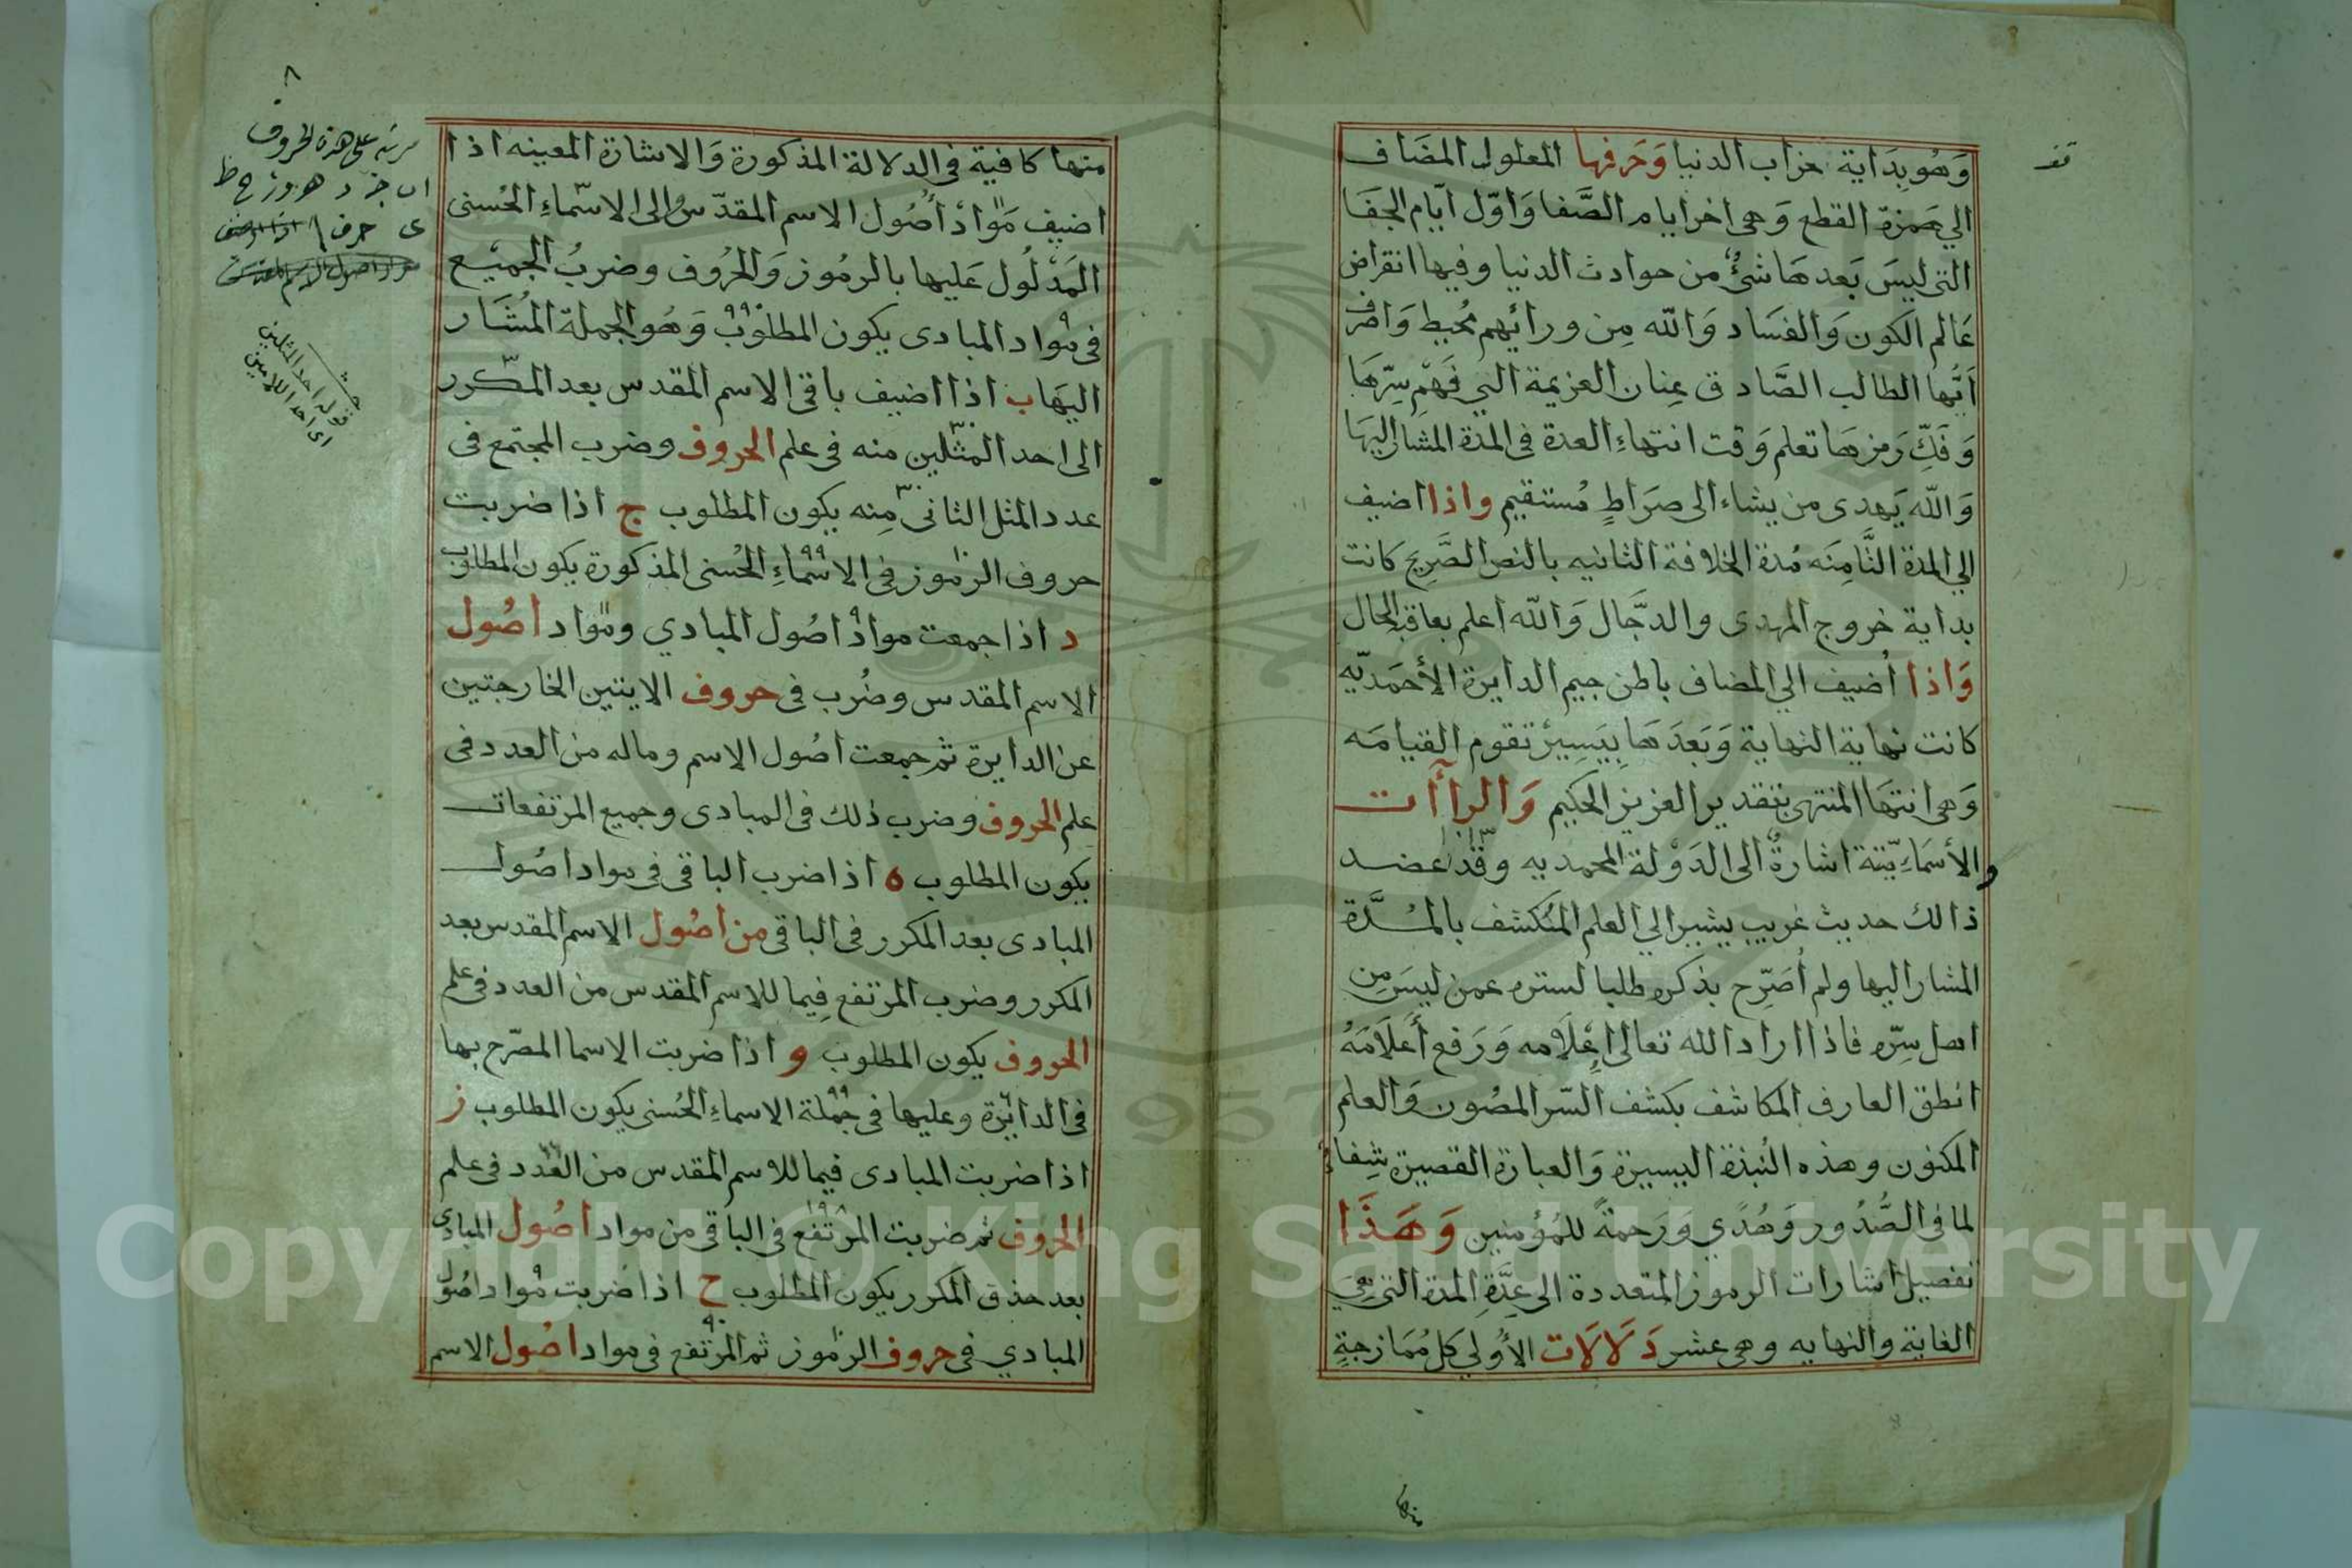 وَهُو بدَاية خراب الدنيا وَحَرفها المعلول المضَاف
الي همزة القطع وَهى اخر ايام الصَّفا وَاوّل ايّام الجفَا
التى ليسَ بَعدهَا شئٌ من حوادث الدنيا وفيها انقراض
عَالم الكون وَالفسَاد وَالله مِن ورائهم محُيط وَاصْرف
اَيُّها الطالب الصَّادق عِنان العزيمة الي فَهْم سِرّهَا
وَفَكِّ رَمزهَا تعلم وَقت انتهاءِ العدة فى المدة المشار اليهَا
وَالله يَهدى من يشاء الى صرَاطٍ مُستقيم واذا اضيف
الي المدة الثَّامِنَه مُدة الخلافة الثانيه بالنص الصَّرِيح كانت
بداية خروج المهدى والدجَّال وَالله اعلم بعاقبة الحال
وَاذا أضيف الي المضاف باطن جيم الدايرة الأحمَديّه
كانت نهاية النهاية وَبَعدَهَا بِيَسِيرْ تقوم القيامَه
وَهى انتهَا المنتهى بتقدير العزيز الحكيم وَالراآت
والأسمَاءِيّتة اشارةٌ الى الدَوْلة المحمديه وقدْ اعضد
ذالك حديث غريب يشير الي العلم المُنكشف بالمُدَّة
المشار اليها ولم أصَرِّح بذكره طلبا لستره عمن ليسَ مِن
اهل سِرّه فاذا اراد الله تعالى إعْلَامه وَرَفع أعَلَامَهُ
انطق العارف المكاشف بكشف السّر المصُون وَالعلم
المكنون وهذه النُبذة اليسيرة وَالعبارة القصيرة شِفاءٌ
لما فى الصُّدُور وَهُدًي وَرَحمةً للمُؤمنين وَهَذَا
تفصيل اشارات الرموز المتعددة الى عِدَّةِ المدة التى هِيَ
الغاية والنهايه وهى عشر دَلَالَات الأولي كلُ مُمَازجةٍ
منها
منها كافية فى الدلالة المذكورة وَالاشارة المعينه اذا ا
اضيف مَوادْ أصُول الاسم المقدّس الى الاسّماءِ الحُسنى
المَدْلُول عَليها بالرمُوز وَالحرُوف وضربُ الجميْع
فى مواد المبادى يكون المطلوبْ وَهُو الجملة المُشَار
اليهَا ب اذا اضيف باقى الاسم المقدس بعد المكرر
الى احد المثلين منه فى علم الحروف وضرب المجتمع فى
عدد المثل الثانى مِنه يكون المطلوب ج اذا ضربت
حروف الرموز فى الاسمَاءِ الحُسنى المذكورة يكون المطلوب
د اذا جمعت موادْ اصُول المبادي ومواد اصُول
الاسم المقدس وضُرب فى حروف الايتين الخارجتين
عن الدايرة ثم جمعت اصُول الاسم وماله من العدد فى
علم الحروف وضرب ذلك فى المبادى وجميع المرتفعات
يكون المطلوب ه اذا ضرب الباقى فى مواد اصُول
المبادى بعد المكرر فى الباقى من اصُول الاسم المقدس بعد
المكرر وضرب المرتفع فِيما للاسم المقدس من العدد فى علم
الحروف يكون المطلوب و اذا ضربت الاسما المصّرح بها
فى الدايْرة وعليها فى جُملة الاسماءِ الحُسنى يكون المطلوب ز
اذا ضربت المبادى فيما للاسم المقدس من العدد فى علم
الحروف ثم ضربت المرتفع فى الباقى من مواد اصُول المبادى
بعد حذف المكرر يكون المطلوب ح اذا ضربت مواد اصُول
المبادي فى حروف الرموز ثم المرتفع فى مواد اصُول الاسم
٨
على هذه الحروف
د ه و ز ح ط
ى حرف
قوله احد المثلين
اى احد اللامين